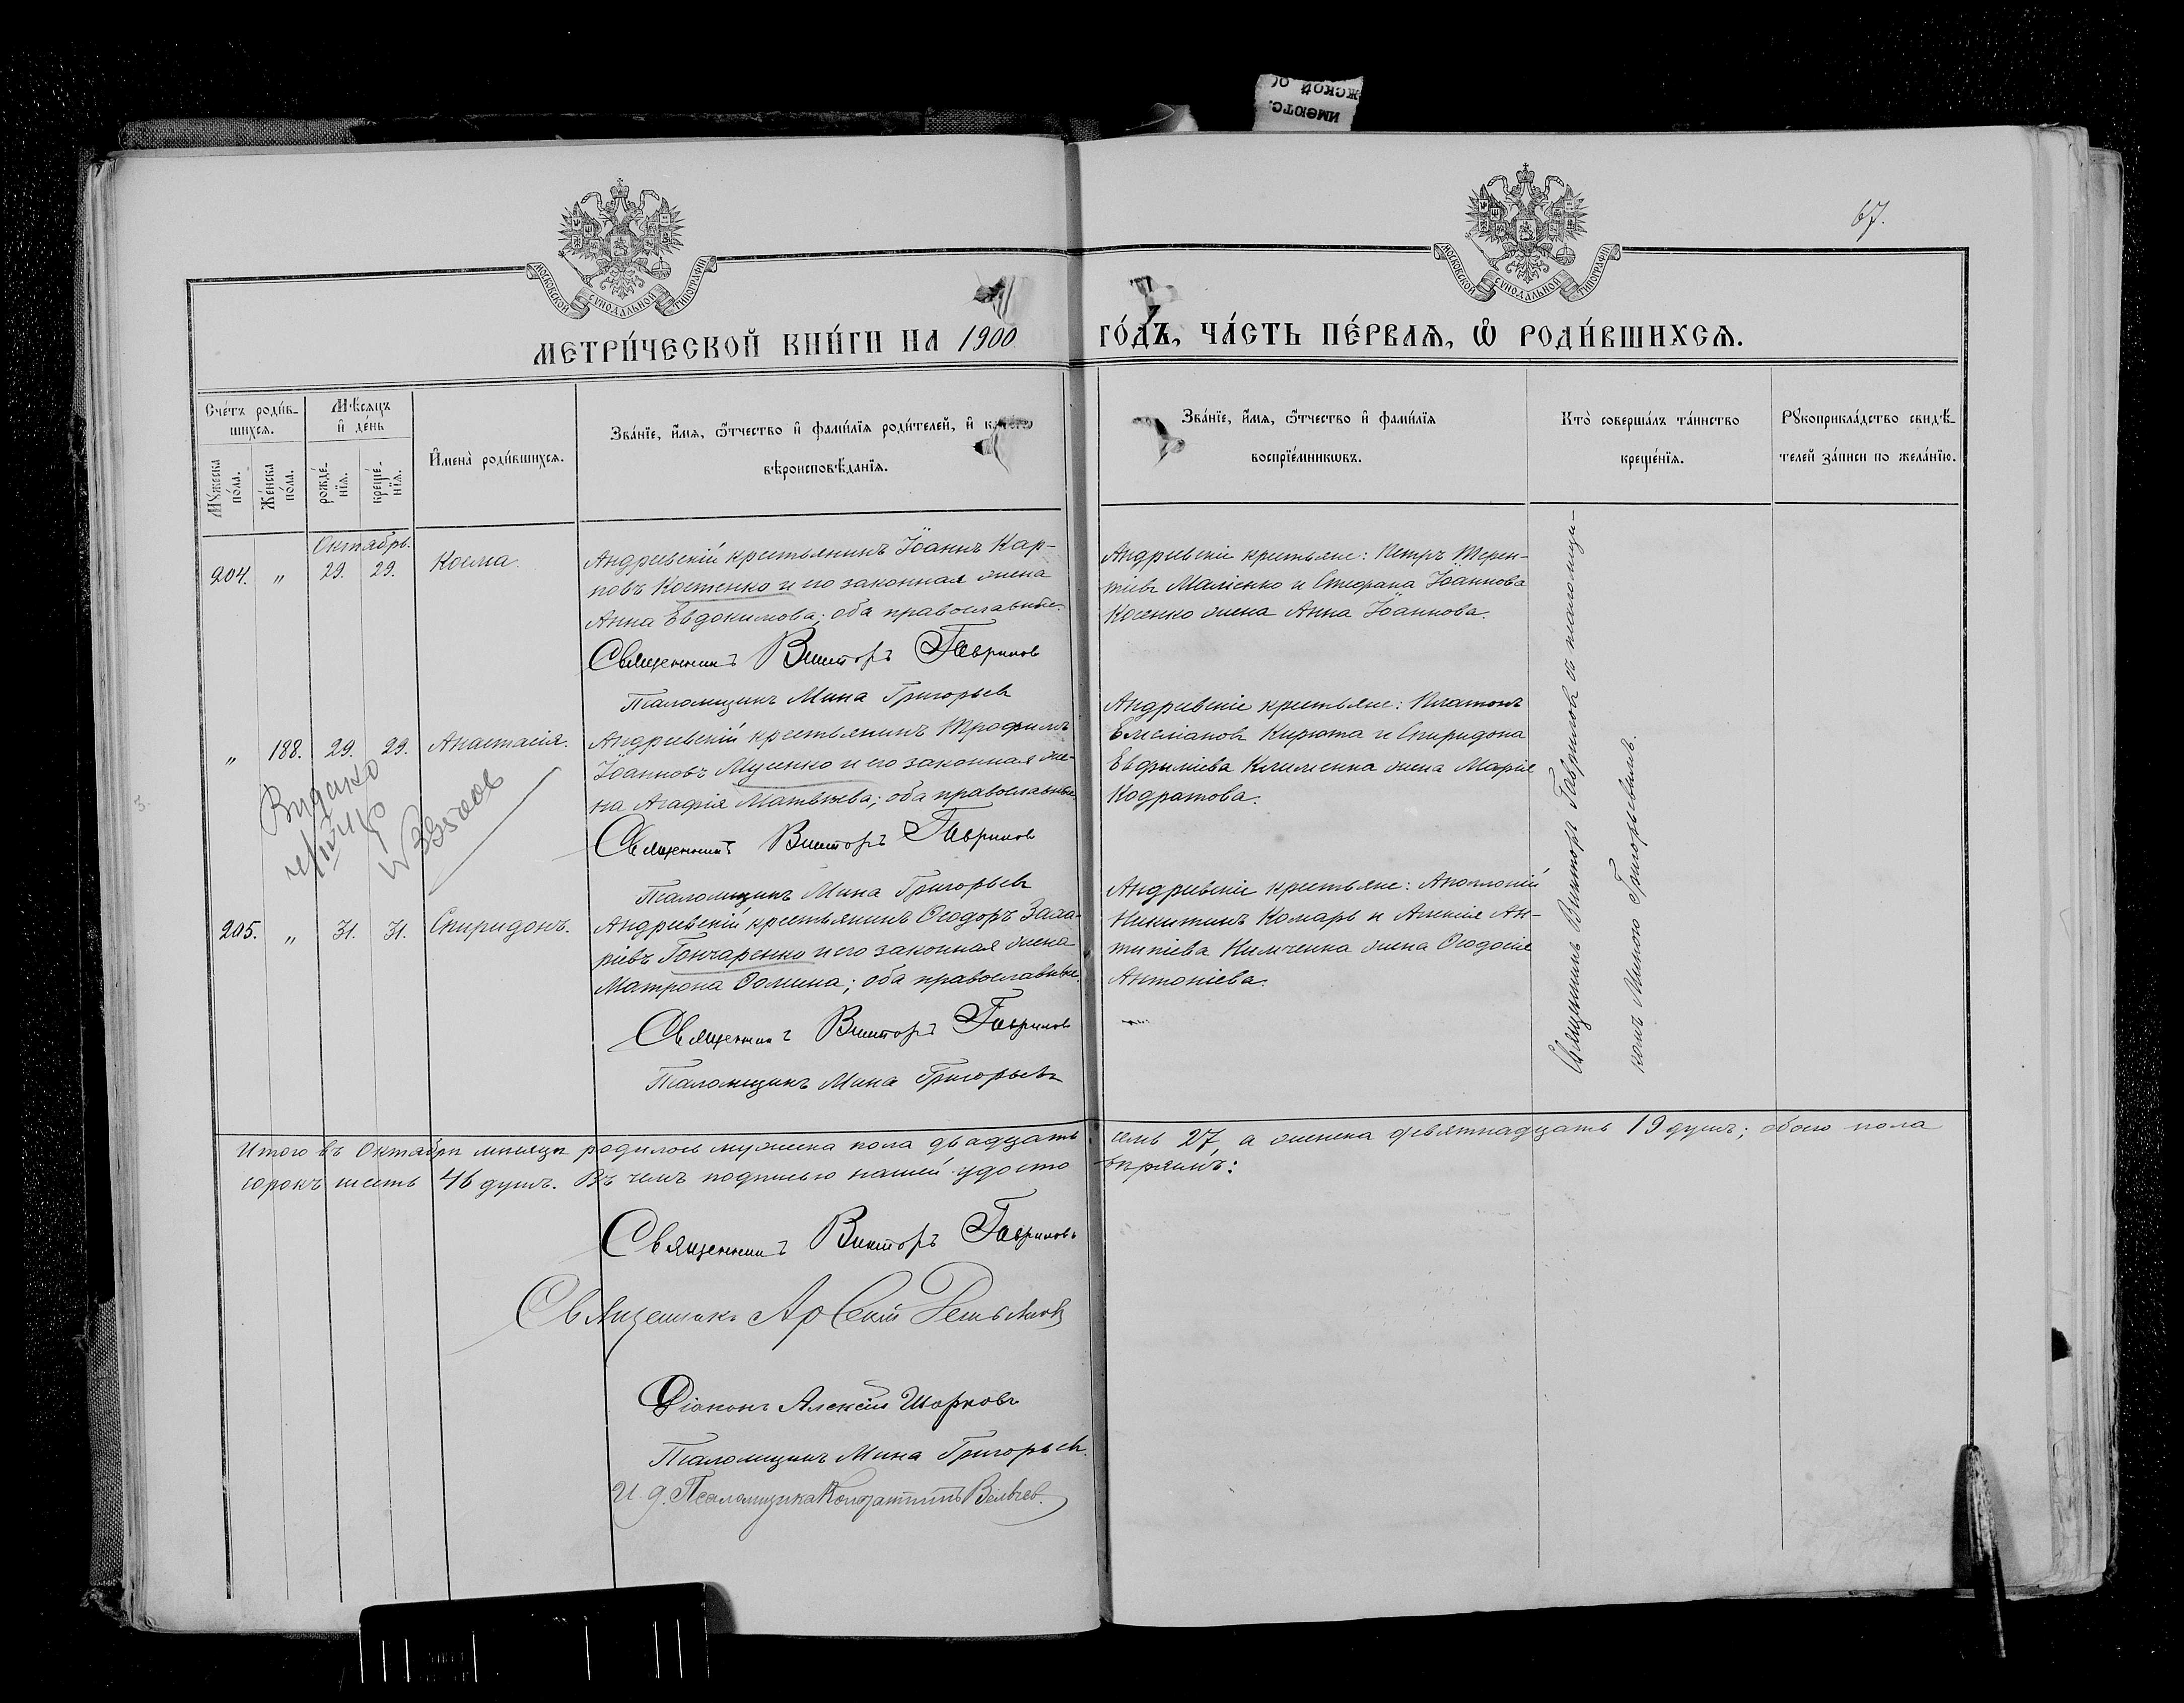 имеютс.
жской о
67.
МОСКОВСКОЙ СѴНОДАЛЬНОЙ ТИПОГРАФІИ
МОСКОВСКОЙ СѴНОДАЛЬНОЙ ТИПОГРАФІИ
МЕТРИ́ЧЕСКОЙ КНИ́ГИ НА 1900 ГО́ДЪ, ЧА́СТЬ ПЕ́РВАѦ, Ѡ҆ РОДИ́ВШИХСѦ.
Сче́тъ роди́в-
шихсѧ.
Мꙋ́жеска по́ла.
Же́нска по́ла.
Мѣ́сѧцъ
и҆ де́нь
рожде́-
нїѧ.
креще́-
нїѧ.
И҆мена̀ роди́вшихсѧ.
Зва́нїе, и҆́мѧ, ѻ҆́тчество и҆ фами́лїѧ роди́телей, и҆
вѣроисповѣ́данїѧ.
Зва́нїе, и҆́мѧ, ѻ҆́тчество и҆ фами́лїѧ
воспрїе́мникѡвъ.
Кто̀ соверша́лъ та́инство
креще́нїѧ.
Рꙋкоприкла́дство свидѣ́-
телей за́писи по жела́нїю.
Октябрь.
204. „ 29. 29. Косма.
Андреевскій крестьянинъ Іоаннъ Кар-
повъ Костенко и его законная жена
Анна Евдокимова; оба православные.
Священникъ Викторъ Гавриловъ
Псаломщикъ Мина Григорьевъ
Андреевскіе крестьяне: Петръ Терен-
тіевъ Маліенко и Стефана Іоаннова
Косенко жена Анна Іоаннова.
„ 188. 29. 29. Анастасія.
Андреевскій крестьянинъ Трофимъ
Іоанновъ Мусенко и его законная же-
на Агафія Матвѣева; оба православные.
Священникъ Викторъ Гавриловъ
Псаломщикъ Мина Григорьевъ
Андреевскіе крестьяне: Платонъ
Емеліановъ Кирюта и Спиридона
Евфиміева Клименка жена Марія
Кодратова.
Видано
205. „ 31. 31. Спиридонъ.
Андреевскій крестьянинъ Ѳеодоръ
ріевъ Гончаренко и его законная жена
Матрона Ѳомина; оба православные.
Священникъ Викторъ Гавриловъ
Псаломщикъ Мина Григорьевъ
Андреевскіе крестьяне: Аполлоній
Никитинъ Комарь и Алексія Ан-
типіева Нимченка жена Ѳеодосія
Антоніева.
Священникъ Викторъ Гавриловъ съ псаломщи-
комъ Миною Григорьевымъ.
Итого въ Октябрѣ мѣсяцѣ родилось мужеска пола двадцать семь 27 а женска девятнадцать 19 душъ; обоего пола
сорокъ шесть 46 душъ. Въ чемъ подписью нашей удостовѣряемъ:
Священникъ Викторъ Гавриловъ
Священникъ Арсеній
Діаконъ Алексій
Псаломщикъ Мина Григорьевъ.
И. д. Псаломщика Константинъ